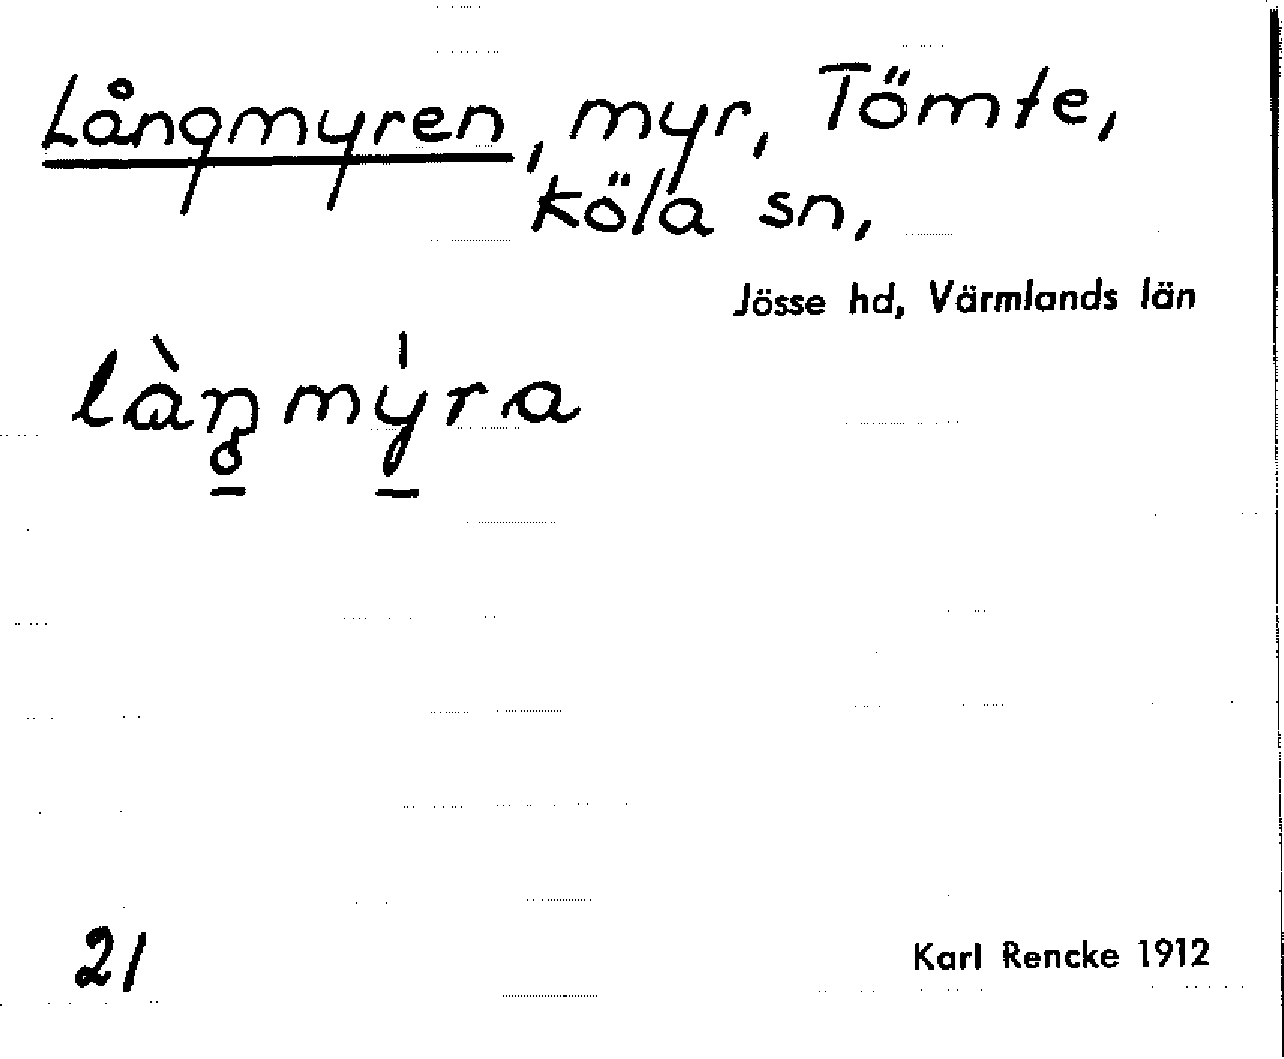 Långmyren, myr, Tömte,
Köla sn,
Jösse hd, Värmlands län
làŋmýra
21
Karl Rencke 1912